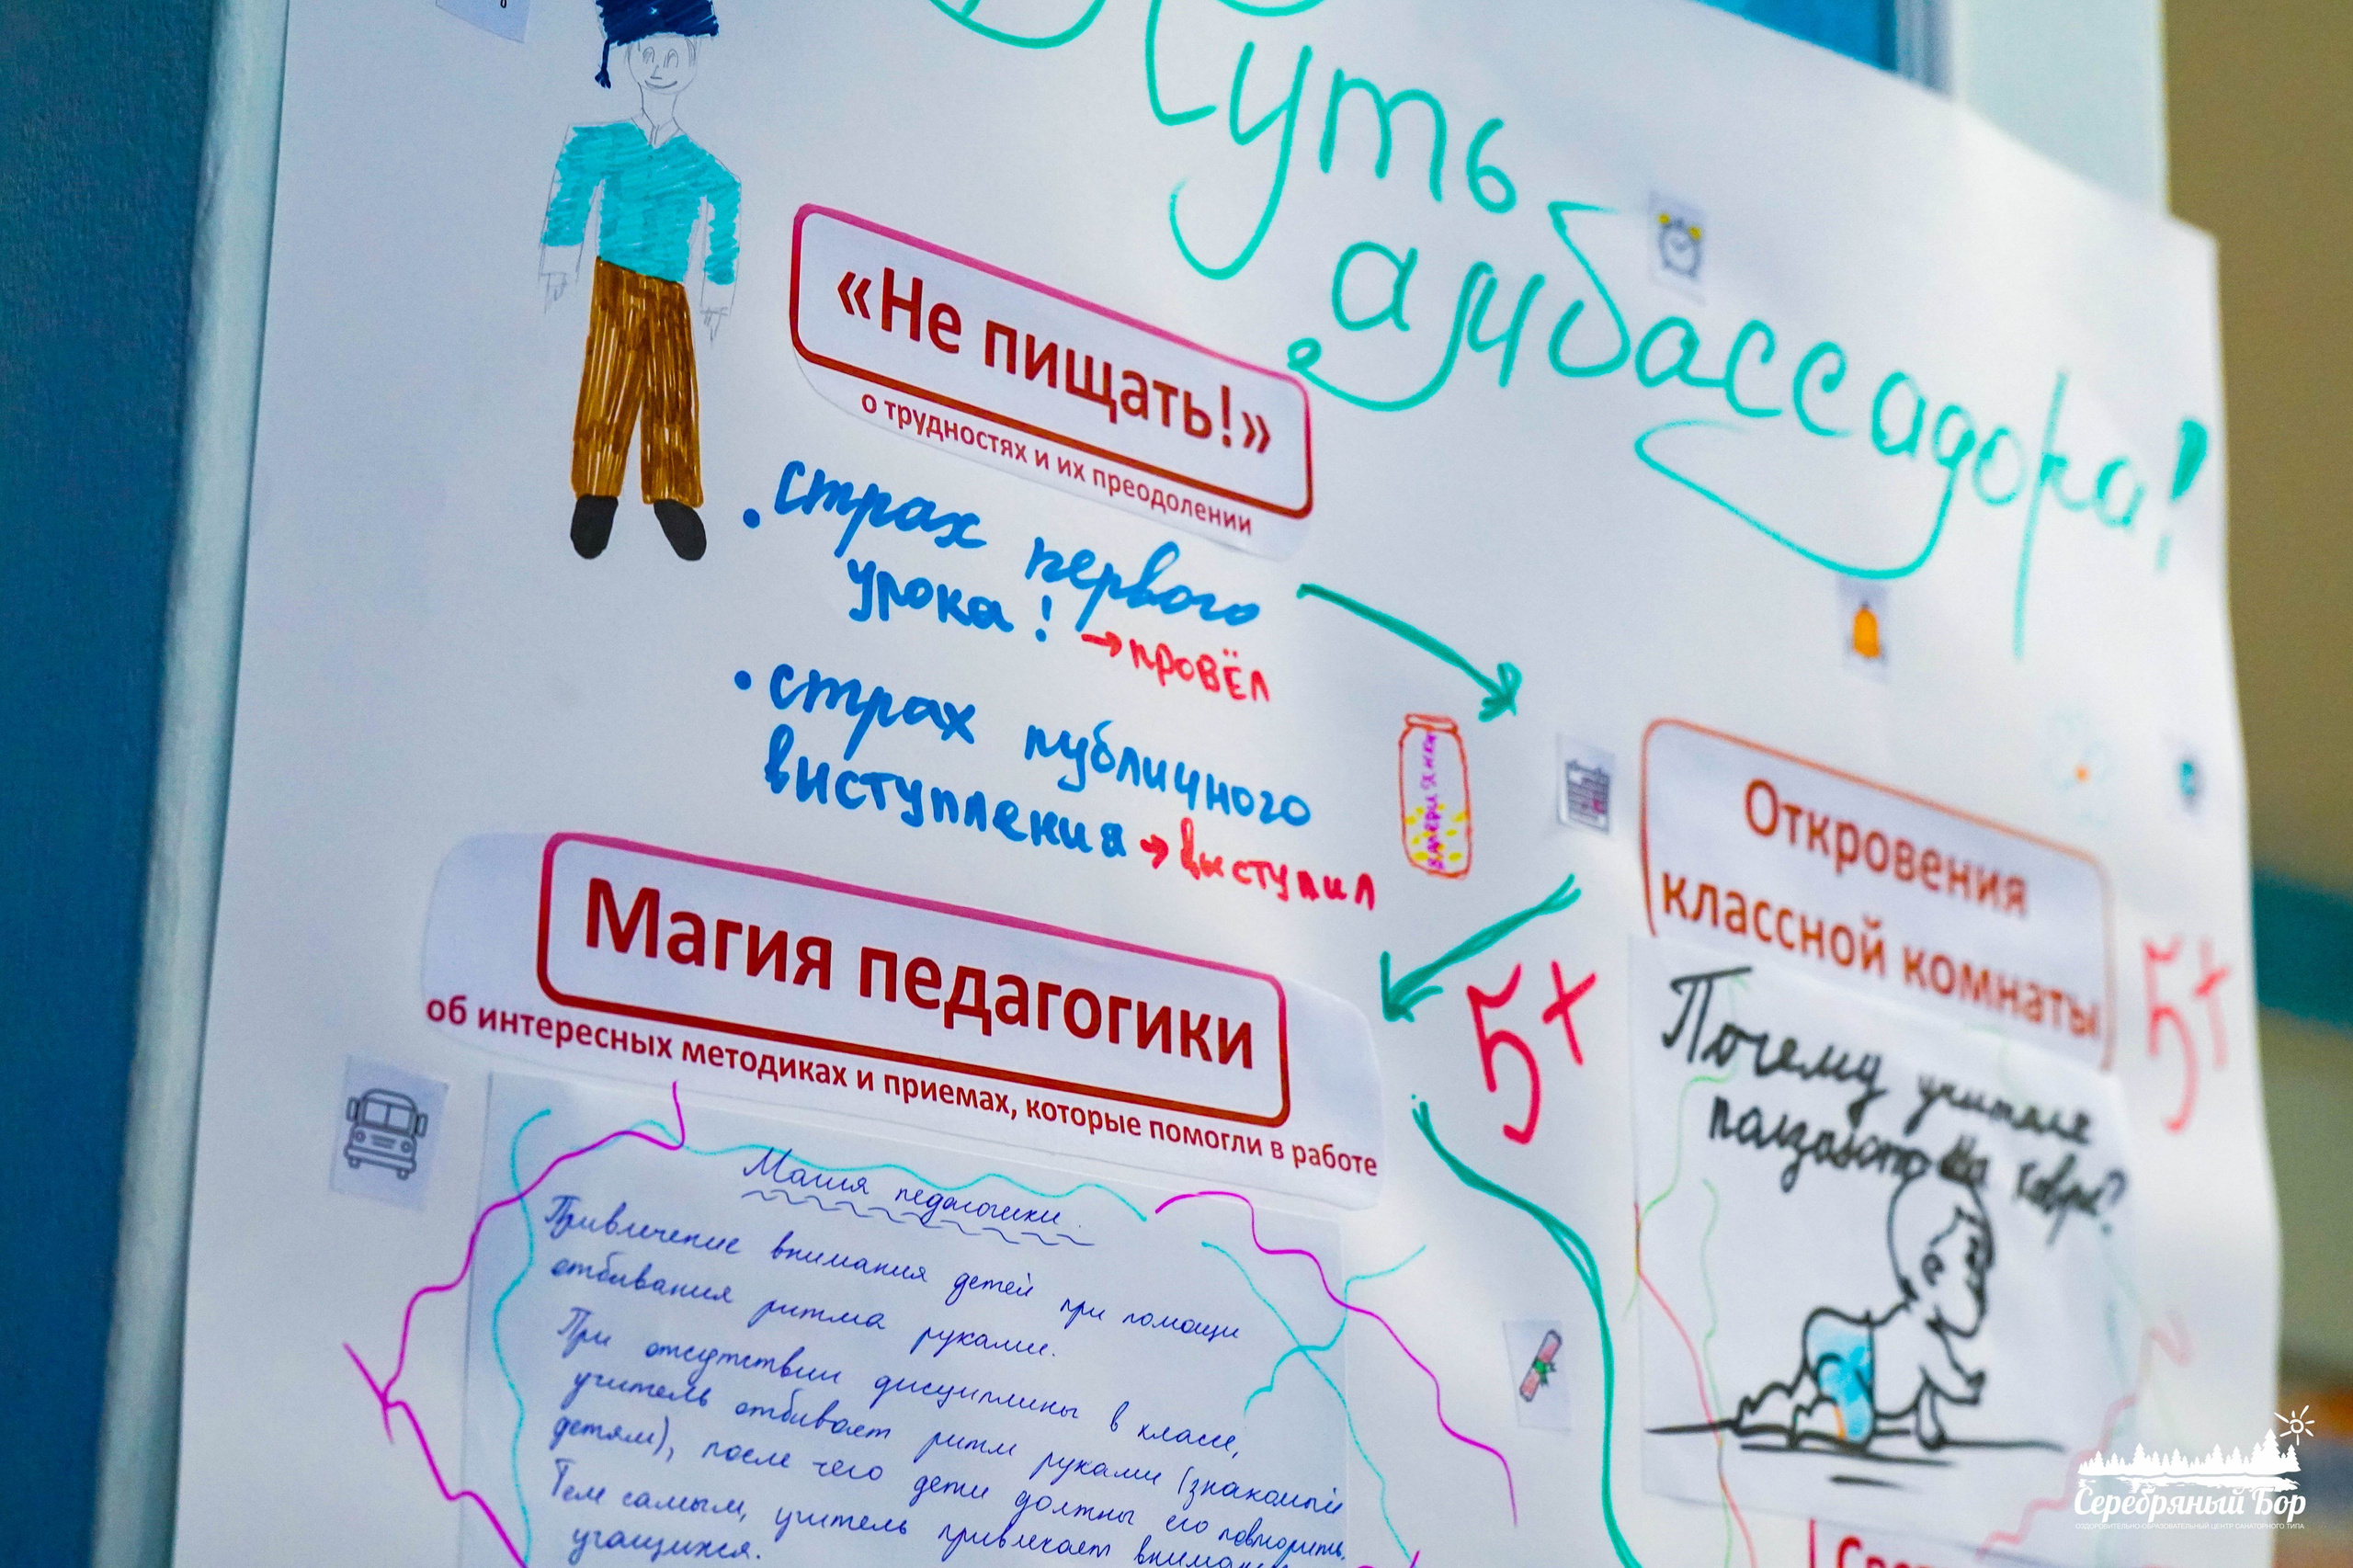 Путь
амбассадора!
«Не пищать!»
о трудностях и их преодолении
• страх первого
урока! → провёл
• страх публичного
выступления → выступил
валерьянки
Откровения
классной комнаты
5+
5+
Почему учителя
ползают на ковре?
Магия педагогики
об интересных методиках и приемах, которые помогли в работе
Магия педагогики.
Привлечение внимания детей при помощи
отбивания ритма руками.
При отсутствии дисциплины в классе,
учитель отбивает ритм руками (знакомый
детям), после чего дети должны его повторить.
Тем самым, учитель привлекает внимание
учащихся.
Серебряный Бор
ОЗДОРОВИТЕЛЬНО-ОБРАЗОВАТЕЛЬНЫЙ ЦЕНТР САНАТОРНОГО ТИПА